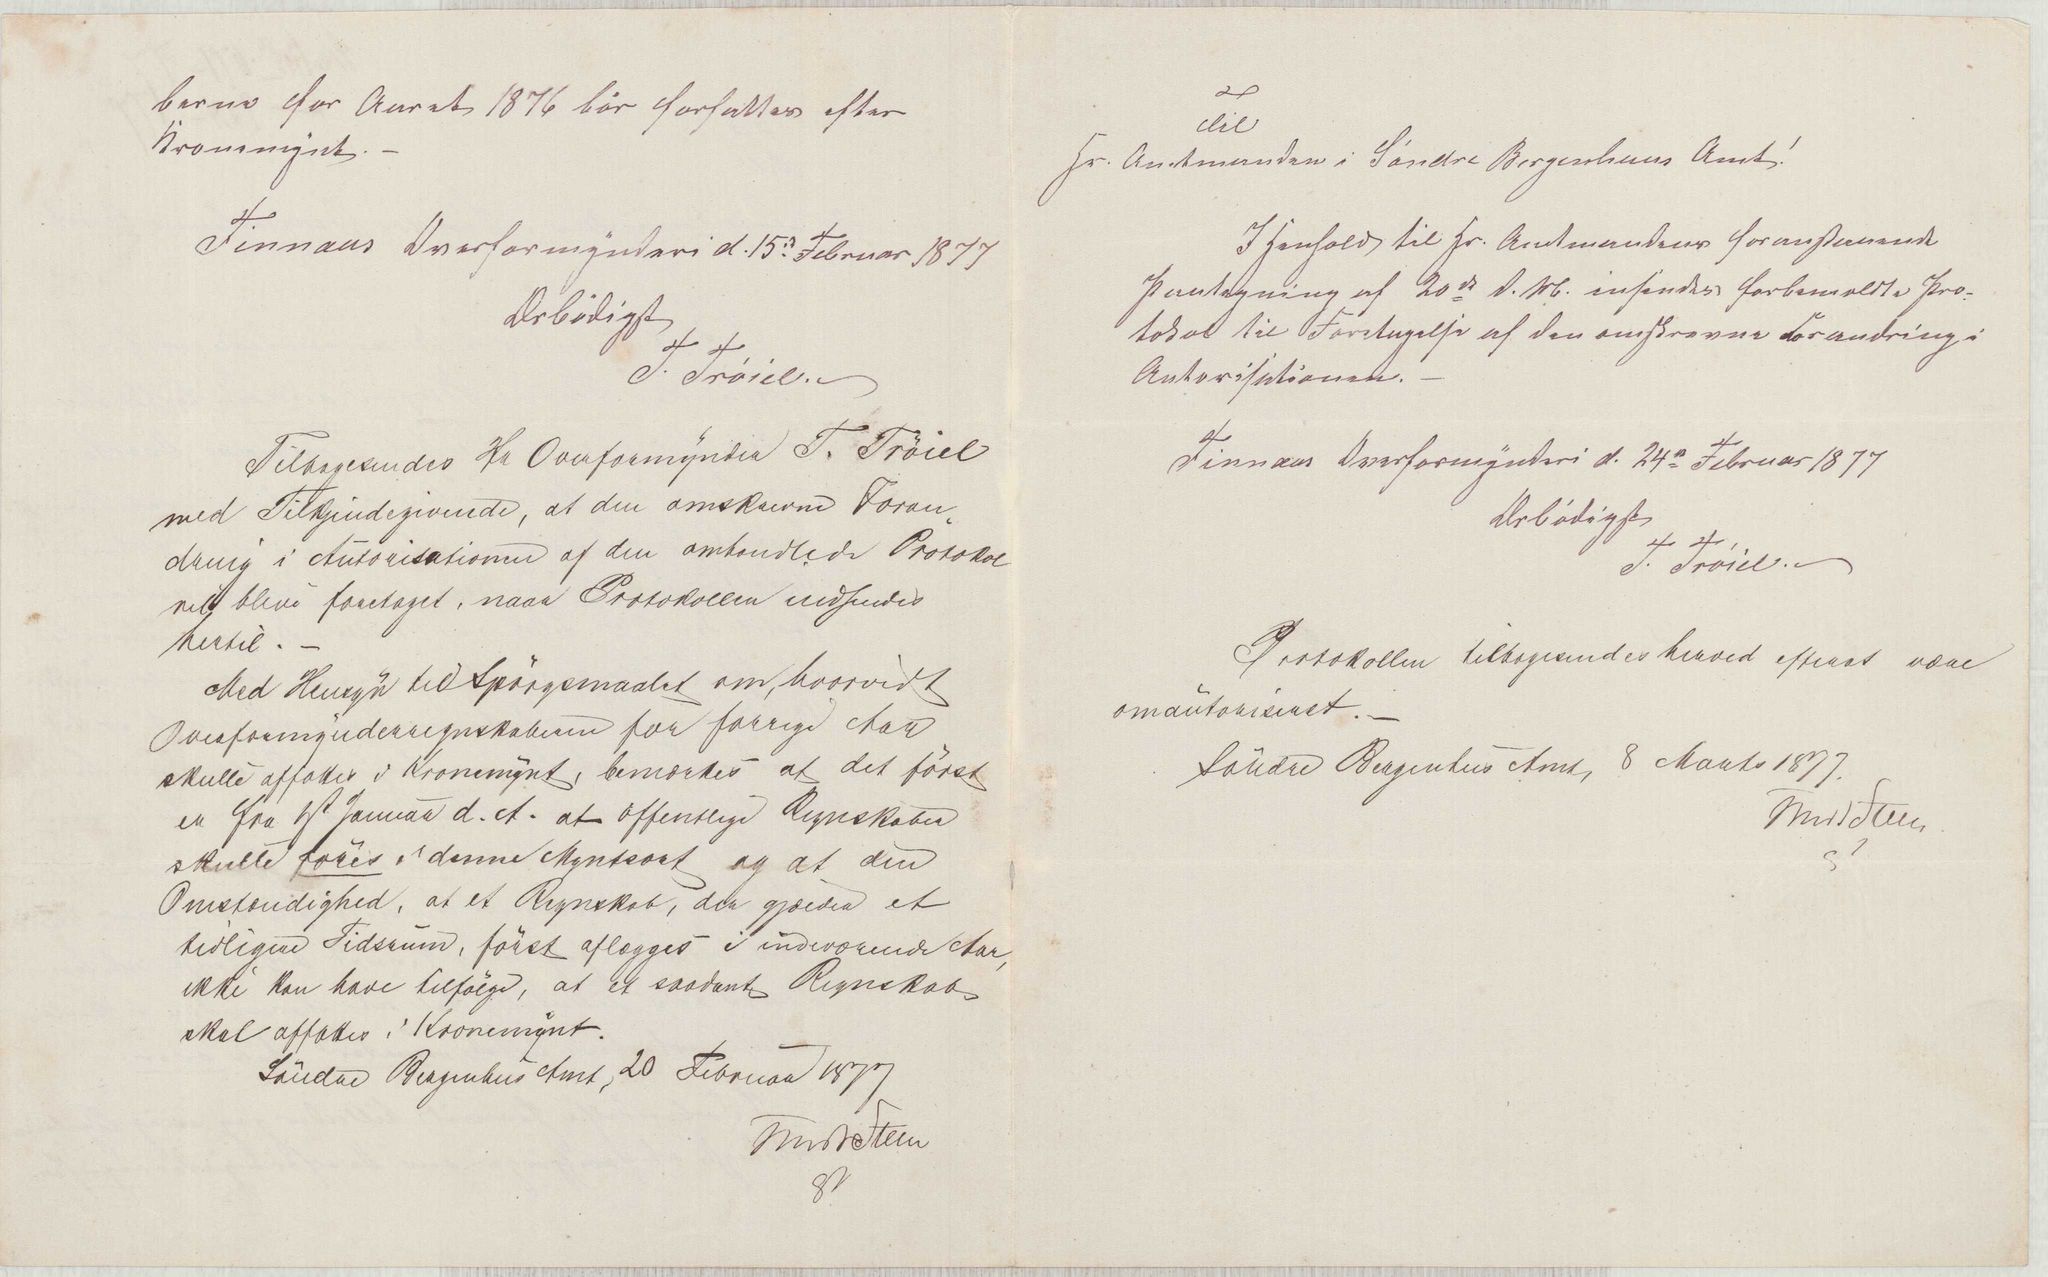 berne for Aaret 1876 bör forfattes efter
Kronemynt. –
Finnaas Overformynderi d. 15de Februar 1877
Ærbödigst
T. Tröiel.
Tilbagesendes Hr Overformynder T. Tröiel
med Tilkjendegivende, at den omskrevne Foran-
dring i Autorisationen af den omhandlede Protokol
vil blive foretaget, naar Protokollen indsendes
hertil. –
Med Hensyn til Spörgsmaalet om, hvorvidt
Overformynderregnskaberne for forrige Aar
skulle affattes i Kronemynt, bemærkes at det först
er fra 1st Januar d. A. at offentlige Regnskaber
skulle föres i denne Myntsort og at den
Omstændighed, at et Regnskab, der gjælder et
tidligere Tidsrum, först aflægges i indeværende Aar,
ikke kan have tilfölge, at et saadant Regnskab
skal affattes i Kronemynt.
Söndre Bergenhus Amt, 20 Februar 1877
Steen
Til
Hr. Amtmanden i Söndre Bergenhuus Amt!
I Henhold til Hr. Amtmandens foranstaaende
Paategning af 20de d. M. insendes forbemeldte Pro-
tokol til Foretagelse af den omskrevne Forandring i
Autorisationen. –
Finnaas Overformynderi d. 24de Februar 1877
Ærbödigst
T. Tröiel.
Protokollen tilbagesendes herved efterat være
omautoriseret. –
Söndre Bergenhus Amt, 8 Marts 1877.
Steen